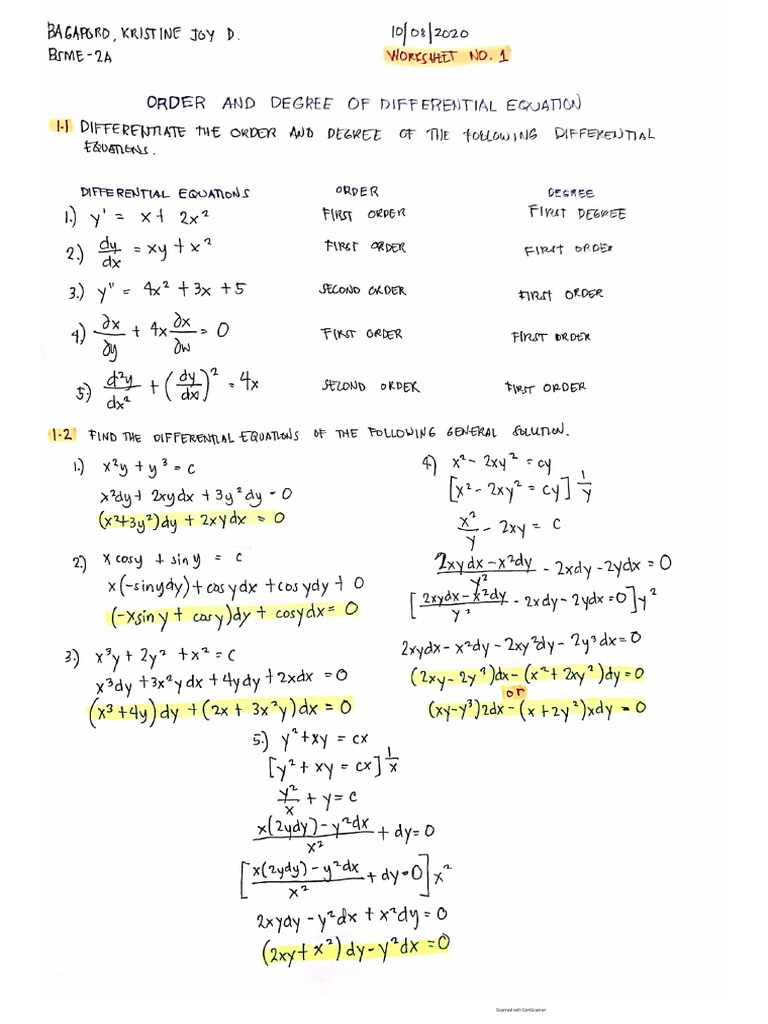 BAGAPORO, KRISTINE JOY D. 10/08/2020
BSME-2A WORKSHEET NO. 1
ORDER AND DEGREE OF DIFFERENTIAL EQUATION
1.1 DIFFERENTIATE THE ORDER AND DEGREE OF THE FOLLOWING DIFFERENTIAL
EQUATIONS.
DIFFERENTIAL EQUATIONS ORDER DEGREE
1.) y' = x + 2x² FIRST ORDER FIRST DEGREE
2.) dy/dx = xy + x² FIRST ORDER FIRST ORDER
3.) y" = 4x² + 3x + 5 SECOND ORDER FIRST ORDER
4) ∂x/∂y + 4x ∂x/∂w = 0 FIRST ORDER FIRST ORDER
5.) d²y/dx² + (dy/dx)² = 4x SECOND ORDER FIRST ORDER
1-2 FIND THE DIFFERENTIAL EQUATIONS OF THE FOLLOWING GENERAL SOLUTION.
1.) x²y + y³ = c
x²dy + 2xydx + 3y²dy = 0
(x²+3y²)dy + 2xydx = 0
2.) x cosy + sin y = c
x(-sinydy) + cosydx + cosydy + 0
(-xsin y + cosy)dy + cosydx = 0
3.) x³y + 2y² + x² = c
x³dy + 3x²ydx + 4ydy + 2xdx = 0
(x³ + 4y) dy + (2x + 3x²y) dx = 0
4) x² - 2xy² = cy
[x² - 2xy² = cy] 1/y
x²/y - 2xy = c
2xydx - x²dy/y² - 2xdy - 2ydx = 0
[2xydx - x²dy/y² - 2xdy - 2ydx = 0] y²
2xydx - x²dy - 2xy²dy - 2y³dx = 0
(2xy - 2y³)dx - (x² + 2xy²)dy = 0
or
(xy-y³)2dx - (x + 2y²)xdy = 0
5.) y² + xy = cx
[y² + xy = cx] 1/x
y²/x + y = c
x(2ydy) - y²dx/x² + dy = 0
[x(2ydy) - y²dx/x² + dy = 0] x²
2xydy - y²dx + x²dy = 0
(2xy + x²) dy - y²dx = 0
Scanned with CamScanner